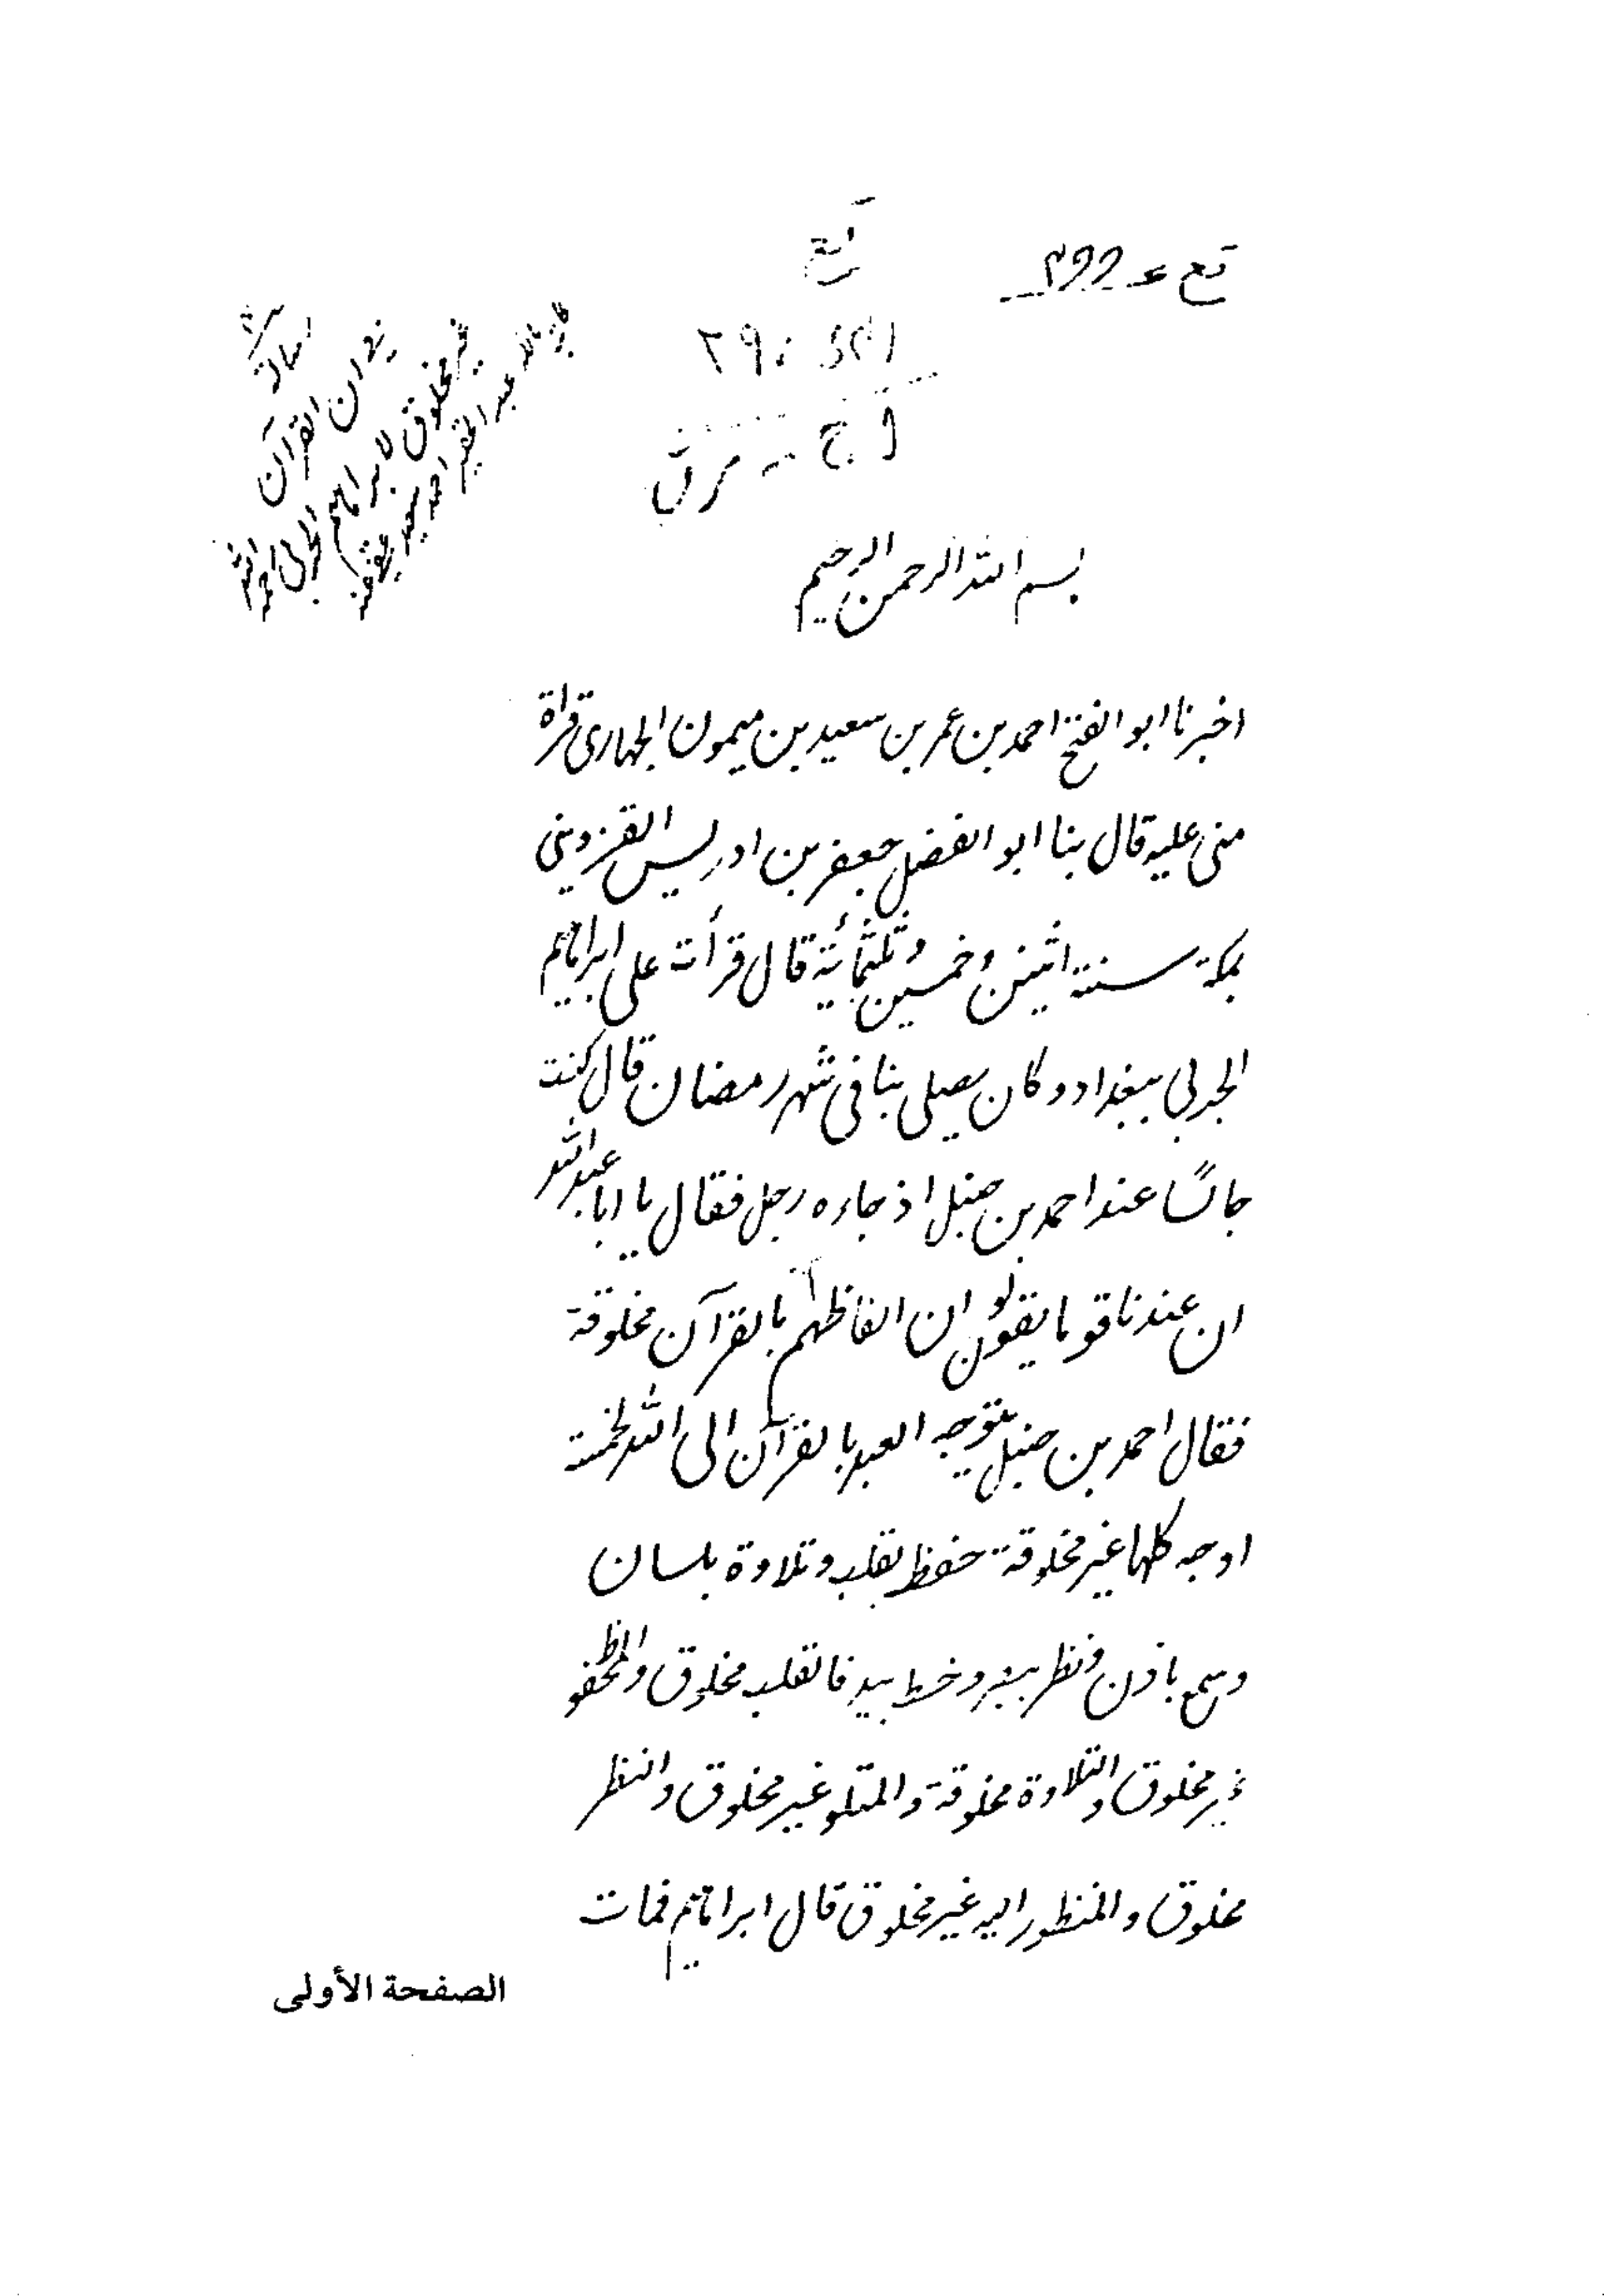 بسم الله الرحمن الرحيم
اخبرنا ابو الفتح احمد بن عمر بن سعيد بن ميمون الجهاري قراة
مني عليه قال بنا ابو الفضل جعفر بن ادريس القزويني
بمكة سنة اثنين وخمسين وثلثمائة قال قرأت على ابراهيم
الحربي ببغداد وكان يصلي بنا في شهر رمضان قال كنت
جالسًا عند احمد بن حنبل اذ جاءه رجل فقال يا ابا عبد الله
ان عندنا قوما يقولون ان الفاظهم بالقرآن مخلوقة
فقال احمد بن حنبل يتوجه العبد بالقرآن الى الله لخمسة
اوجه كلها غير مخلوقة حفظ بقلب وتلاوة بلسان
وسمع باذن ونظر ببصر وخط بيد فالقلب مخلوق والمحفوظ
غير مخلوق والتلاوة مخلوقة والمتلو غير مخلوق والنظر
مخلوق والمنظور اليه غير مخلوق قال ابراهيم فمات
الصفحة الأولى